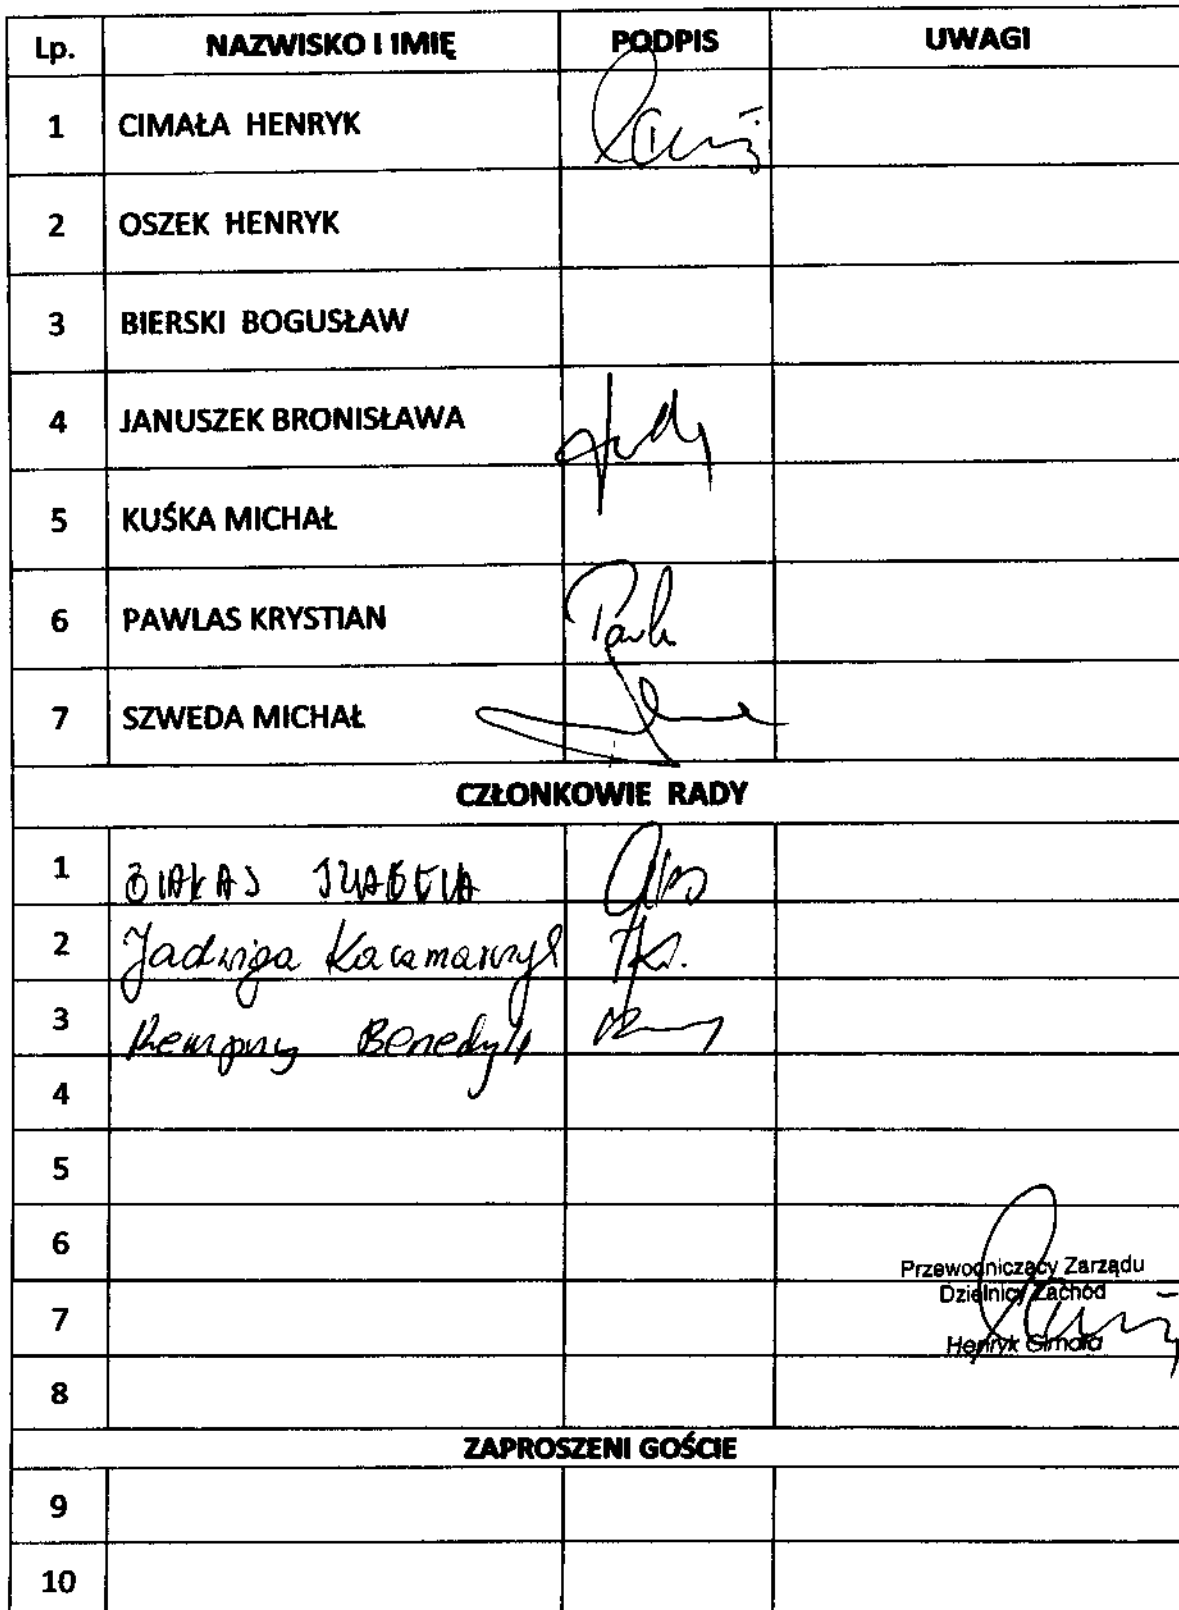 Lp. NAZWISKO I IMIĘ PODPIS UWAGI
1 CIMAŁA HENRYK
2 OSZEK HENRYK
3 BIERSKI BOGUSŁAW
4 JANUSZEK BRONISŁAWA
5 KUŚKA MICHAŁ
6 PAWLAS KRYSTIAN
7 SZWEDA MICHAŁ
CZŁONKOWIE RADY
1 BIAŁAS IZABELA
2 Jadwiga Kaczmarczyk
3 Kempny Benedykt
4
5
6
Przewodniczący Zarządu
Dzielnicy Zachód
7
Henryk Cimała
8
ZAPROSZENI GOŚCIE
9
10